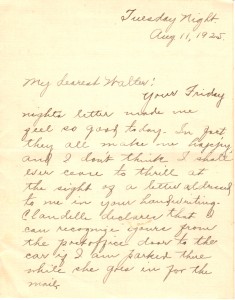 Tuesday Night
Aug 11, 1925
My Dearest Walter:
Your Friday
nights letter made me
feel so good today. In fact
they all make me happy
and I don't think I shall
ever cease to thrill at
the sight of a letter addressed
to me in your handwriting.
Claudelle declares that I
can recognize yours from
the postoffice door to the
car if I am parked there
while she goes in for the
mail.